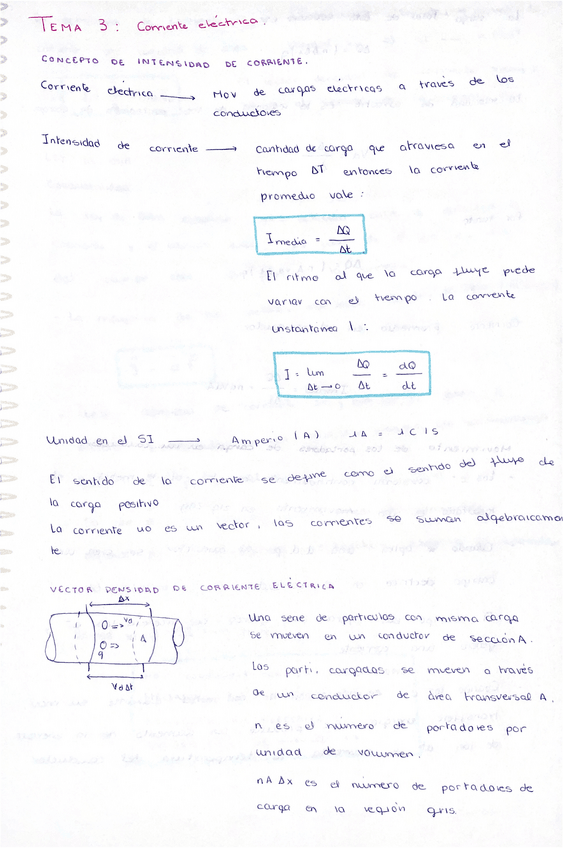 TEMA 3: Corriente eléctrica.
CONCEPTO DE INTENSIDAD DE CORRIENTE.
Corriente eléctrica ⟶ Mov de cargas eléctricas a través de los
conductores
Intensidad de corriente ⟶ Cantidad de carga que atraviesa en el
tiempo ΔT entonces la corriente
promedio vale:
I media = ΔQ / Δt
El ritmo al que la carga fluye puede
variar con el tiempo. La corriente
instantánea I:
I = lim Δt→0 ΔQ / Δt = dQ / dt
Unidad en el SI ⟶ Amperio (A) 1A = 1C/S
El sentido de la corriente se define como el sentido del flujo de
la carga positiva
La corriente no es un vector, las corrientes se suman algebraicamen
te
VECTOR DENSIDAD DE CORRIENTE ELÉCTRICA
Δx
Vd
A
q
Vd Δt
Una serie de partículas con misma carga
se mueven en un conductor de sección A.
Las parti. cargadas se mueven a través
de un conductor de área transversal A.
n es el número de portadores por
unidad de volumen.
nA Δx es el número de portadores de
carga en la región gris.